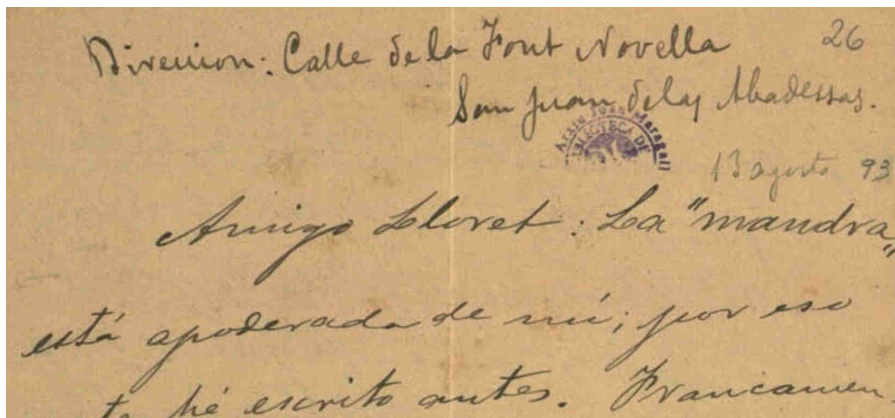 Direccion: Calle de la Font Novella
26
San Juan de las Abadessas.
Arxiu Joan Maragall
BIBLIOTECA DE
13 agosto 93
Amigo Lloret: La "mandra"
está apoderada de mí; por eso
te hé escrito antes. Francamen